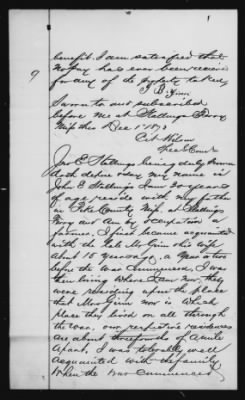 benefit. I am satisfied that
no pay has ever been received
for any of the property taken,
Sworn to and subscribed
before me at Stallings Ferry
Miss this Dec 1st 1873
Jno E Stallings being duly sworn
doth depose & say my name is
John E Stallings I am 30 years
of age reside with my father
in Pike County Miss. at Stallings
Ferry and my occupation a
farmer. I first became acquainted
with the late Mr Guinn & his wife
about 15 years ago, a year or two
before the War Commenced, I was
then living where I am now, they
were residing upon the place
that Mrs Guinn now is which
place they lived on all through
the War. our respective residences
are about three fourths of a mile
apart, I was tolerably well
acquainted with the family
when the War Commenced,